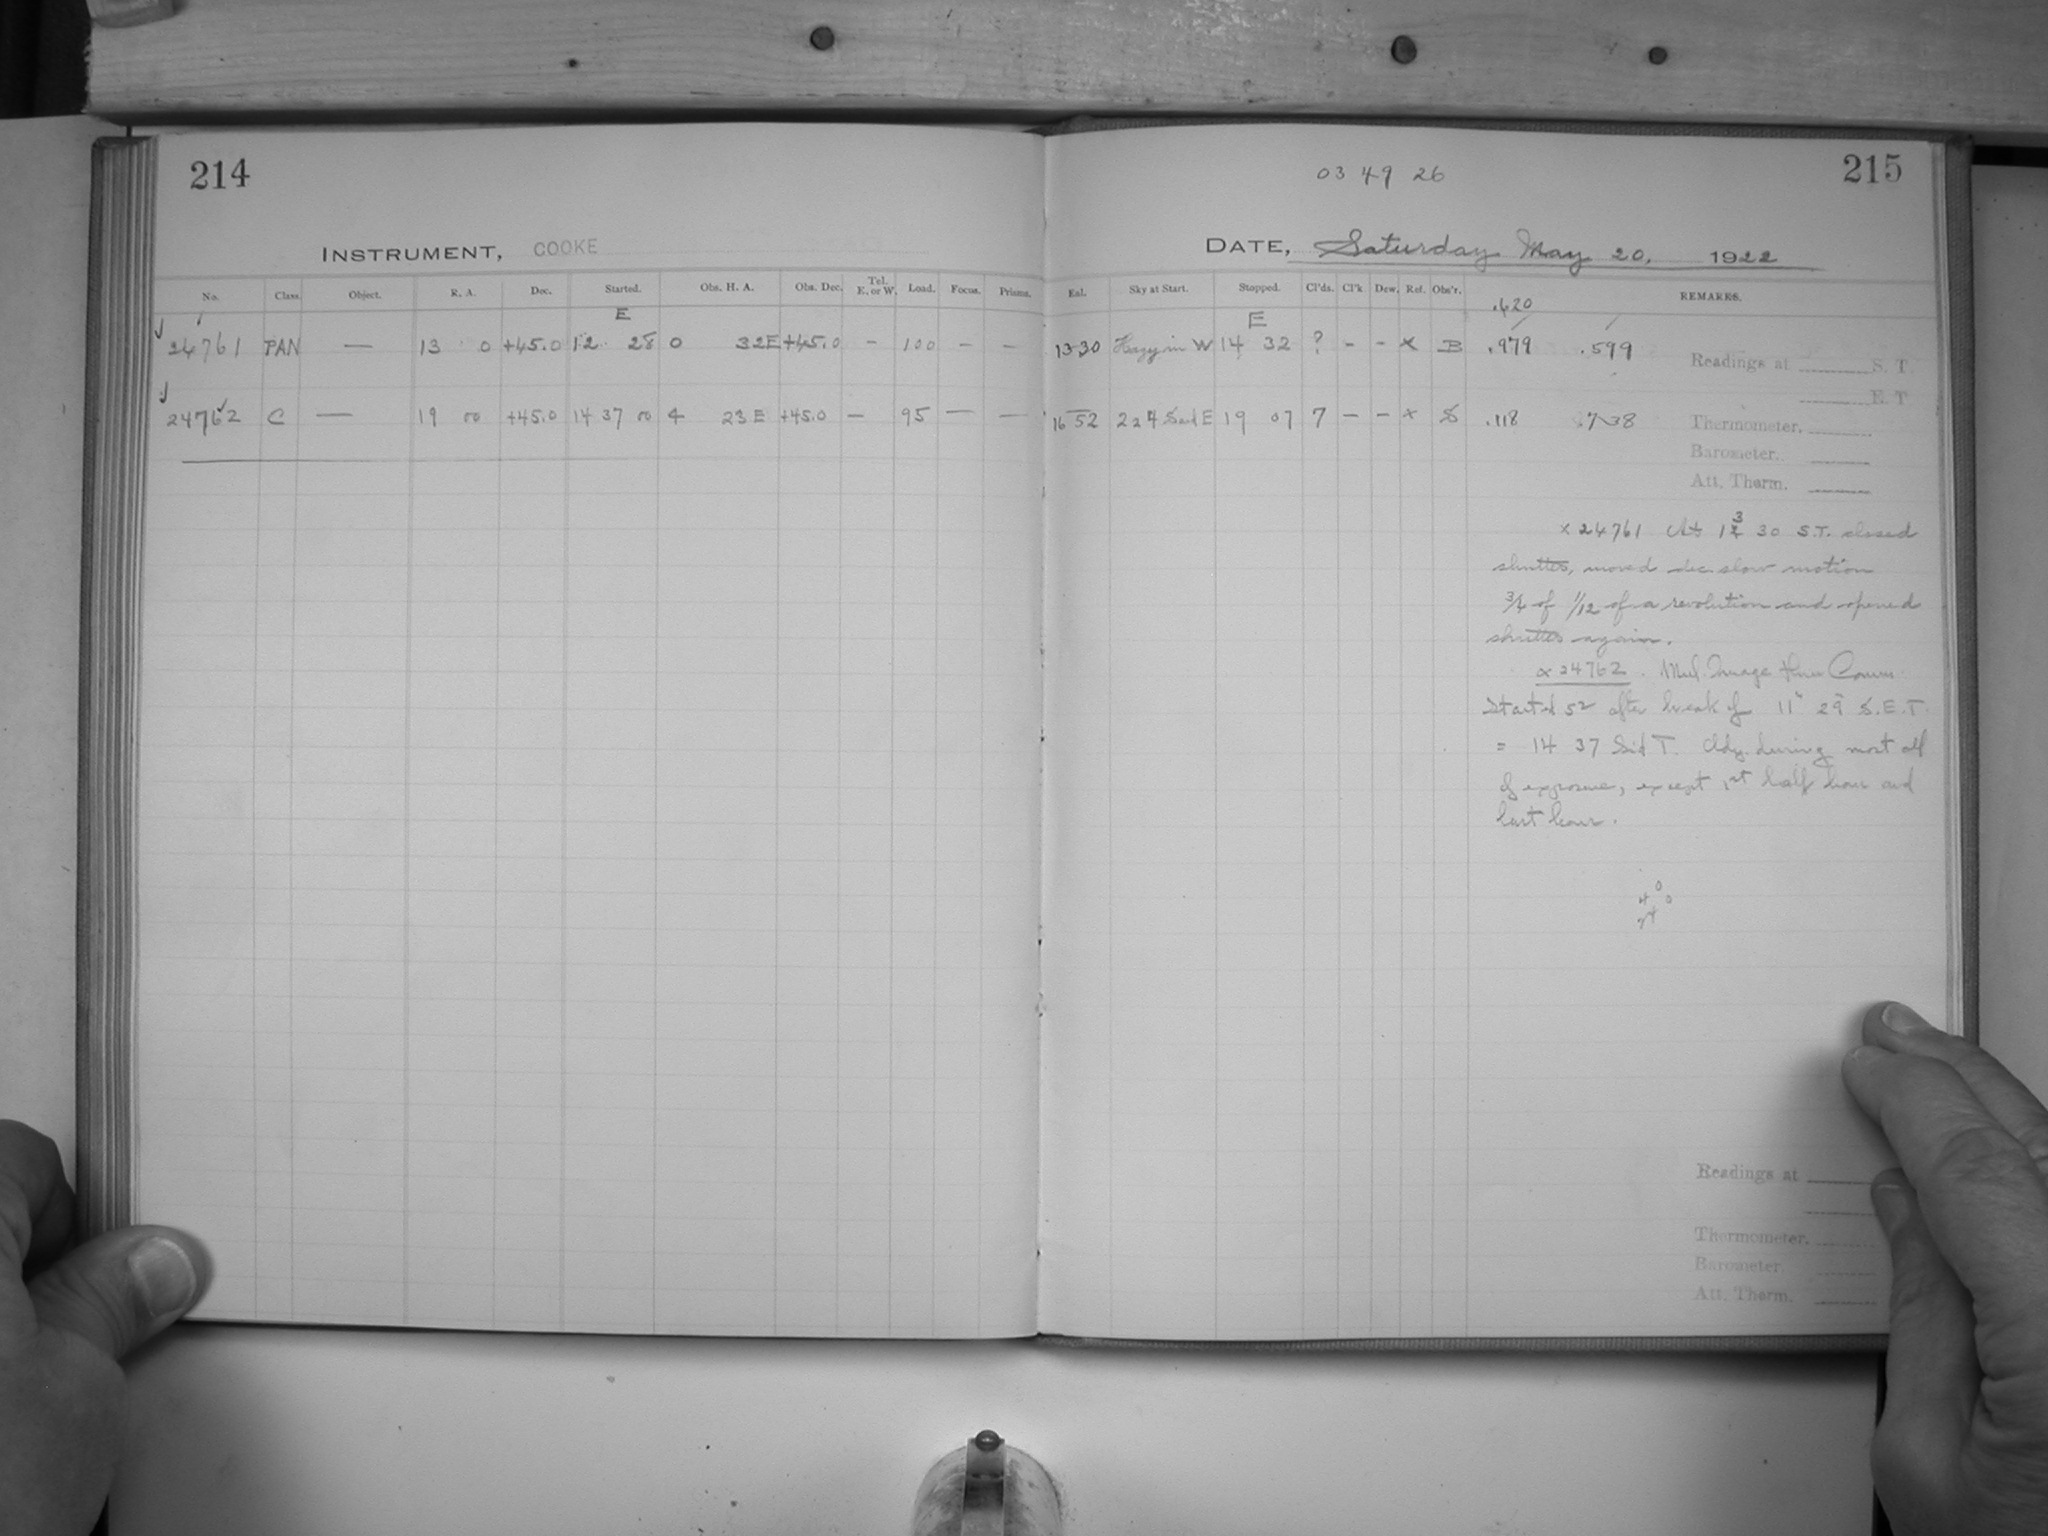 214
INSTRUMENT, COOKE
No. Class. Object. R. A. Dec. Started. Obs. H. A. Obs. Dec. Tel. E. or W. Load. Focus. Prisms.
E
24761 PAN — 13 0 +45.0 12 28 0 32E +45.0 - 100 - -
24762 C — 19 00 +45.0 14 37 00 4 23 E +45.0 — 95 — —
03 49 26
215
DATE, Saturday May 20, 1922
Exl. Sky at Start. Stopped. Cl'ds. Cl'k Dew. Ref. Obs'r. REMARKS.
.620
E
13 30 Hazy in W 14 32 ? - - x B .979 .599
Readings at S. T.
E. T.
16 52 S and E 19 07 7 — — x S .118 .738
Thermometer.
Barometer.
Att. Therm.
x 24761 At 13 30 S.T. closed
shutter, moved dec slow motion
3/4 of 1/12 of a revolution and opened
shutter again.
x 24762. Mul. Image thru Comm
Started after break of 11 29 S.E.T.
= 14 37 Sid T. Cldy. during most all
of exposure, except 1st half hour and
last hour.
Readings at
Thermometer.
Barometer.
Att. Therm.